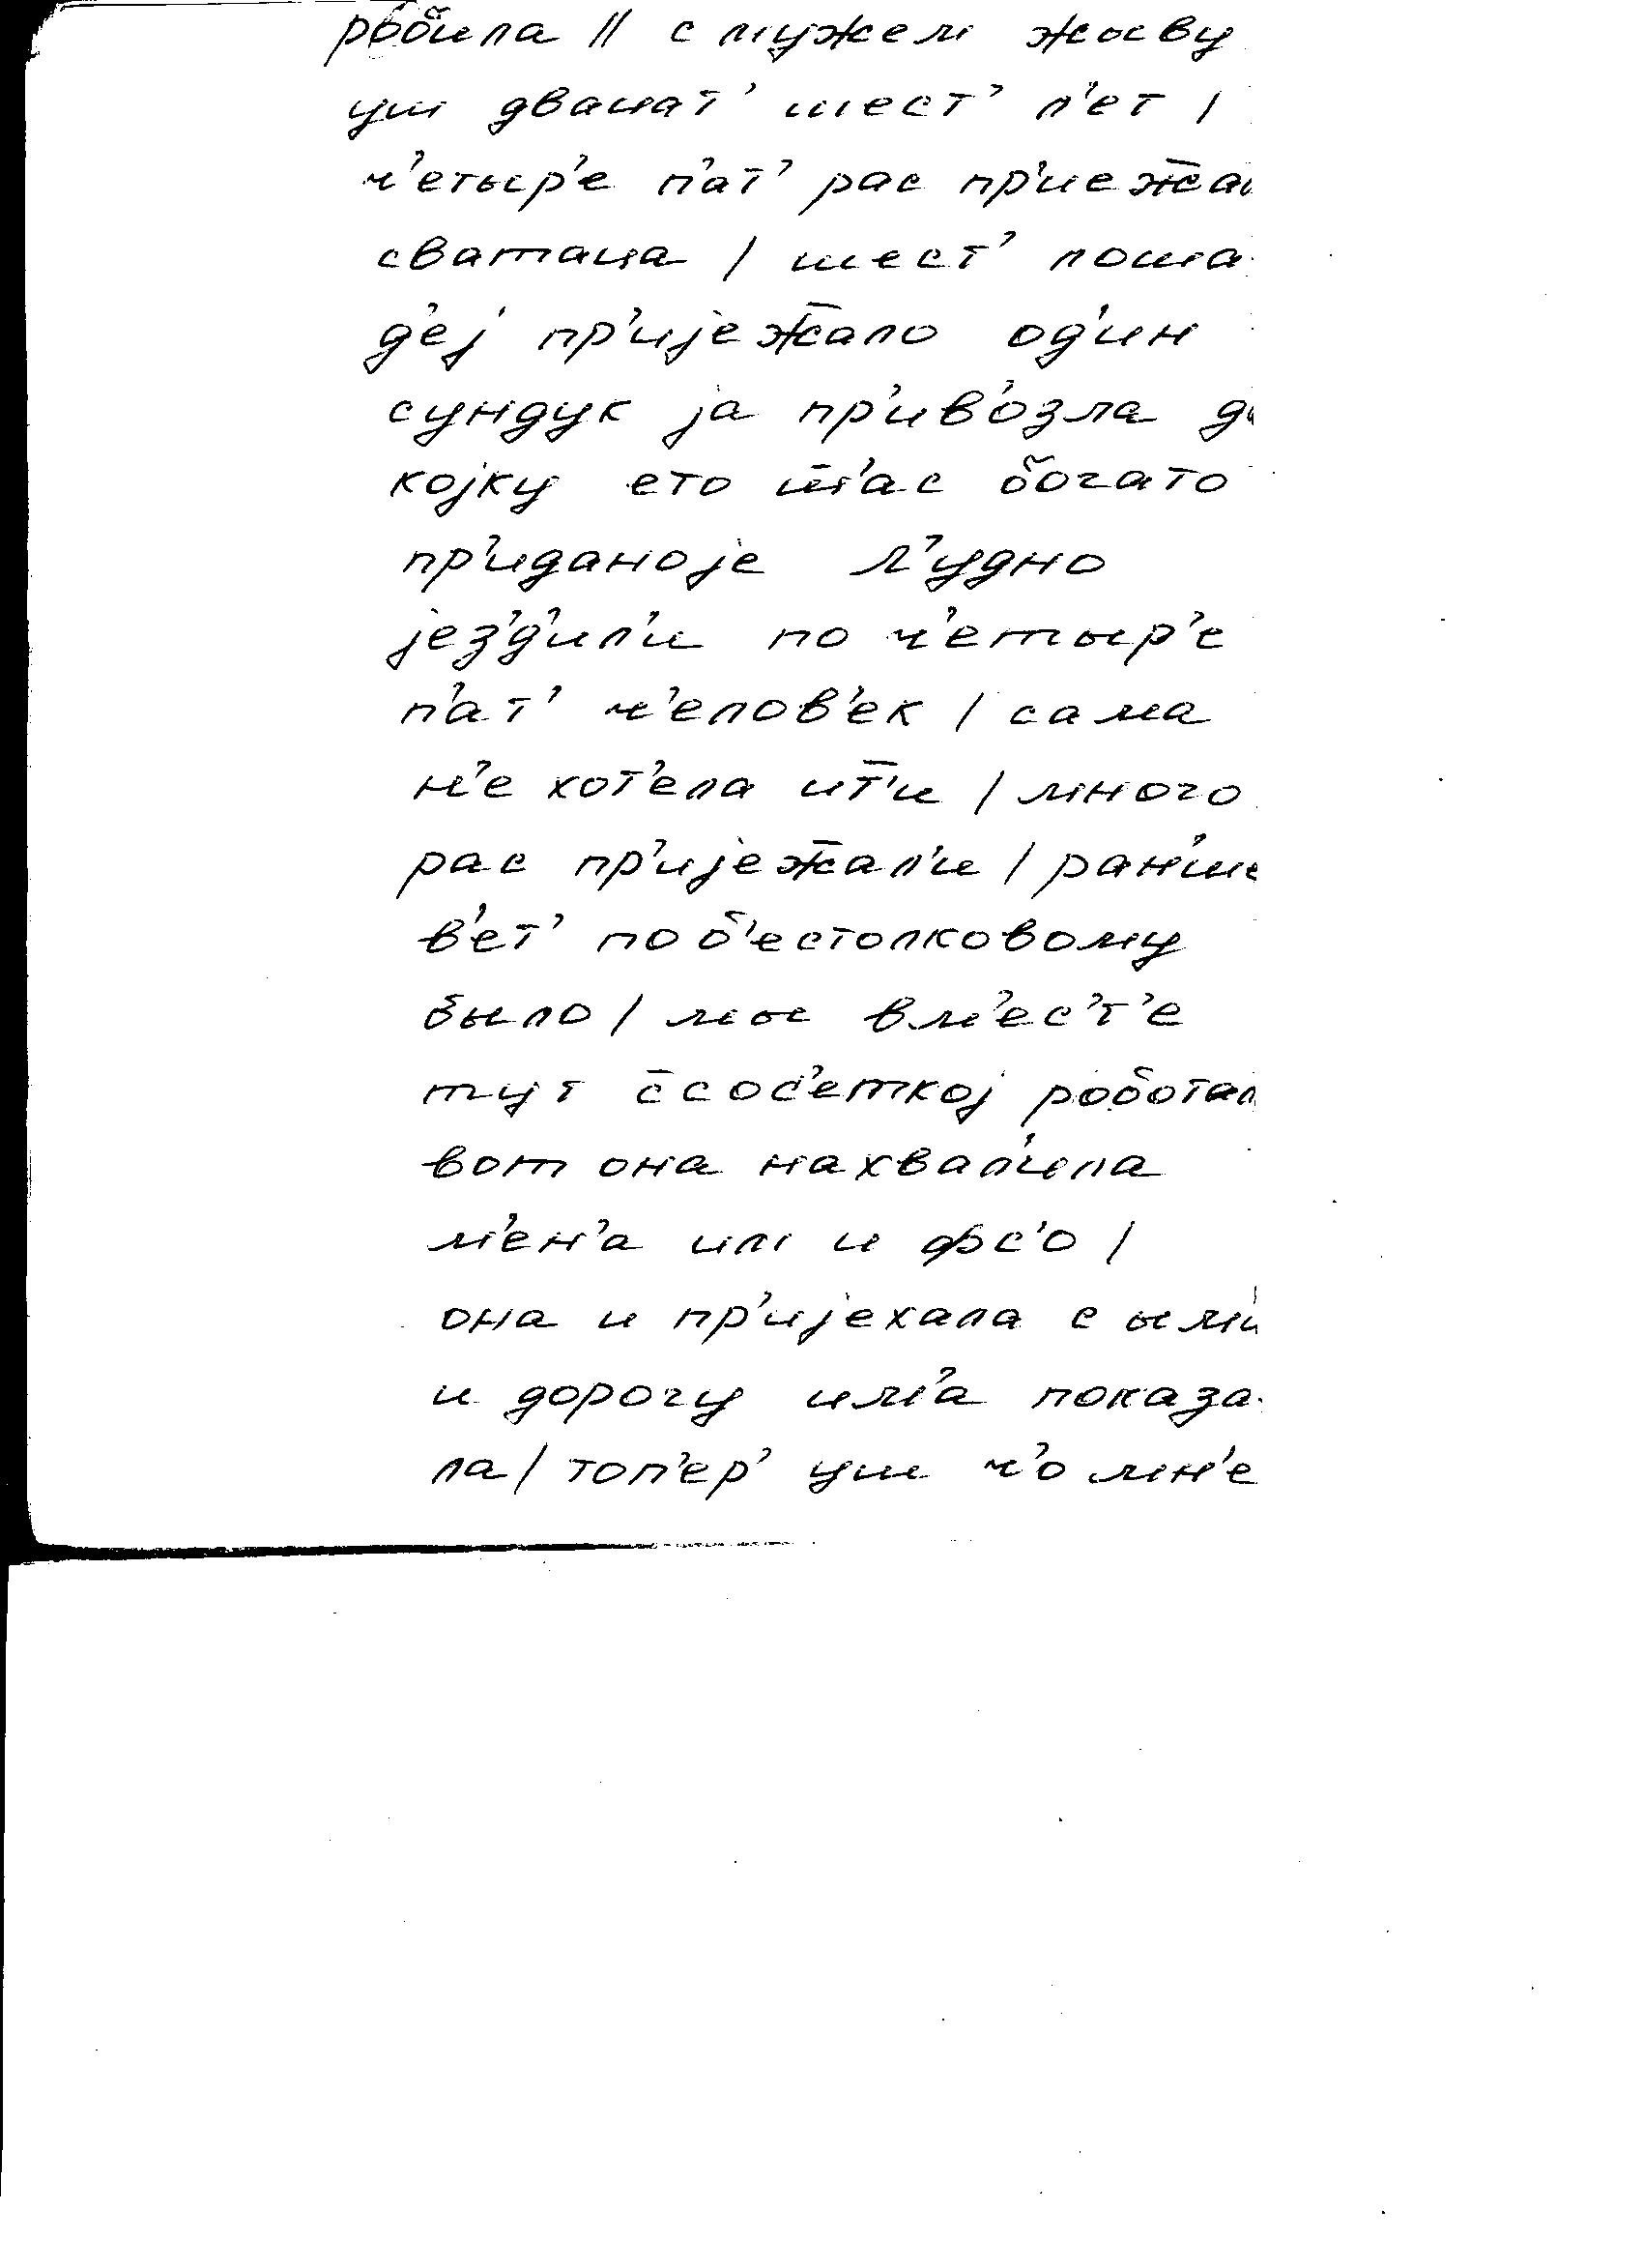 робила || с мужем жыву
уш двацат' шест' л'ет |
ч'етыр'е п'ат' рас пр'иеж̅а
сватаца | шест' лоша
д'еј пр'ијеж̅ало од'ин
сундук ја пр'ив'озла д
којку ето ш̅'ас богато
пр'иданоје л'удно
јез'д'ил'и по ч'етыр'е
п'ат' ч'елов'ек | сама
н'е хот'ела ит̅'и | много
рас пр'ијеж̅ал'и | ран'ше
в'ет' по б'естолковому
было | мы вм'ес'т'е
тут с̅сос'еткој роботал
вот она нахвал'ила
м'ен'а им и фс'о |
она и пр'ијехала с ым'и
и дорогу им'а показа-
ла | топ'ер' уш ч'о мн'е